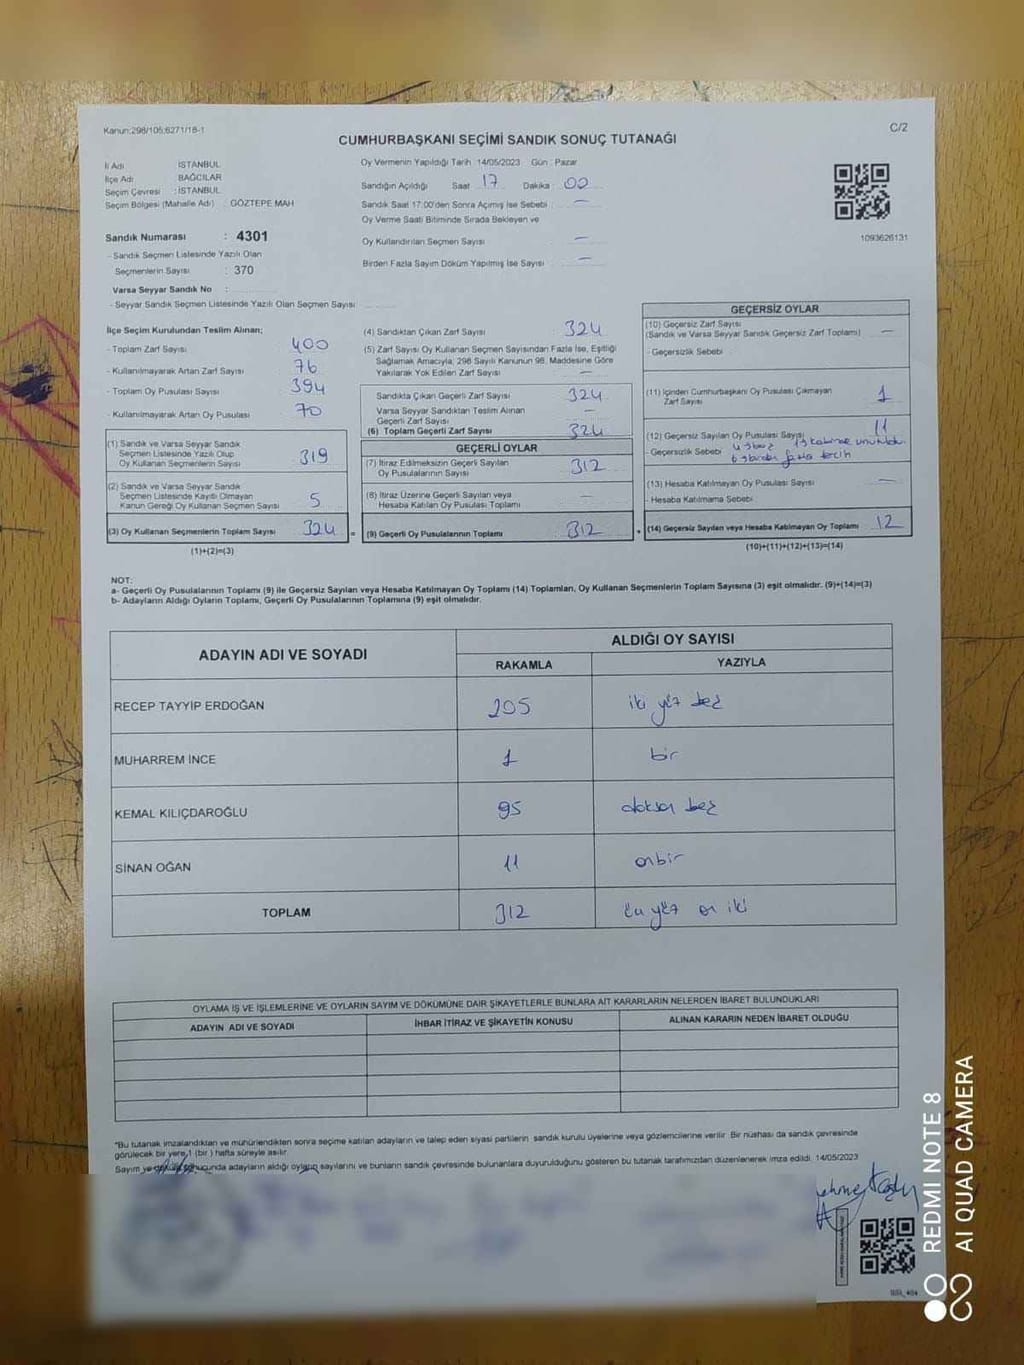 Kanun:298/105;6271/16-1
C/2
CUMHURBAŞKANI SEÇİMİ SANDIK SONUÇ TUTANAĞI
İl Adı : İSTANBUL
İlçe Adı : BAĞCILAR
Seçim Çevresi : İSTANBUL
Seçim Bölgesi (Mahalle Adı) : GÖZTEPE MAH
Sandık Numarası : 4301
- Sandık Seçmen Listesinde Yazılı Olan
Seçmenlerin Sayısı : 370
Varsa Seyyar Sandık No :
- Seyyar Sandık Seçmen Listesinde Yazılı Olan Seçmen Sayısı
Oy Vermenin Yapıldığı Tarih : 14/05/2023 Gün : Pazar
Sandığın Açıldığı Saat : 17 Dakika : 00
Sandık Saat 17:00'den Sonra Açılmış İse Sebebi : —
Oy Verme Saati Bitiminde Sırada Bekleyen ve
Oy Kullandırılan Seçmen Sayısı —
Birden Fazla Sayım Döküm Yapılmış İse Sayısı : —
1093626131
İlçe Seçim Kurulundan Teslim Alınan;
- Toplam Zarf Sayısı 400
- Kullanılmayarak Artan Zarf Sayısı 76
- Toplam Oy Pusulası Sayısı 394
- Kullanılmayarak Artan Oy Pusulası 70
(1) Sandık ve Varsa Seyyar Sandık
Seçmen Listesinde Yazılı Olup
Oy Kullanan Seçmenlerin Sayısı 319
(2) Sandık ve Varsa Seyyar Sandık
Seçmen Listesinde Kayıtlı Olmayan
Kanun Gereği Oy Kullanan Seçmen Sayısı 5
(3) Oy Kullanan Seçmenlerin Toplam Sayısı 324 =
(1)+(2)=(3)
(4) Sandıktan Çıkan Zarf Sayısı 324
(5) Zarf Sayısı Oy Kullanan Seçmen Sayısından Fazla İse, Eşitliği
Sağlamak Amacıyla, 298 Sayılı Kanunun 98. Maddesine Göre
Yakılarak Yok Edilen Zarf Sayısı —
Sandıkta Çıkan Geçerli Zarf Sayısı 324
Varsa Seyyar Sandıktan Teslim Alınan
Geçerli Zarf Sayısı —
(6) Toplam Geçerli Zarf Sayısı 324
GEÇERLİ OYLAR
(7) İtiraz Edilmeksizin Geçerli Sayılan
Oy Pusulalarının Sayısı 312
(8) İtiraz Üzerine Geçerli Sayılan veya
Hesaba Katılan Oy Pusulası Toplamı —
(9) Geçerli Oy Pusulalarının Toplamı 312 +
GEÇERSİZ OYLAR
(10) Geçersiz Zarf Sayısı
(Sandık ve Varsa Seyyar Sandık Geçersiz Zarf Toplamı) —
- Geçersizlik Sebebi
(11) İçinden Cumhurbaşkanı Oy Pusulası Çıkmayan
Zarf Sayısı 1
(12) Geçersiz Sayılan Oy Pusulası Sayısı 11
- Geçersizlik Sebebi
fazla tercih
(13) Hesaba Katılmayan Oy Pusulası Sayısı —
- Hesaba Katılmama Sebebi
(14) Geçersiz Sayılan veya Hesaba Katılmayan Oy Toplamı 12
(10)+(11)+(12)+(13)=(14)
NOT:
a- Geçerli Oy Pusulalarının Toplamı (9) ile Geçersiz Sayılan veya Hesaba Katılmayan Oy Toplamı (14) Toplamları, Oy Kullanan Seçmenlerin Toplam Sayısına (3) eşit olmalıdır. (9)+(14)=(3)
b- Adayların Aldığı Oyların Toplamı, Geçerli Oy Pusulalarının Toplamına (9) eşit olmalıdır.
ADAYIN ADI VE SOYADI
ALDIĞI OY SAYISI
RAKAMLA YAZIYLA
RECEP TAYYİP ERDOĞAN 205 iki yüz beş
MUHARREM İNCE 1 bir
KEMAL KILIÇDAROĞLU 95 doksan beş
SİNAN OĞAN 11 onbir
TOPLAM 312 üç yüz on iki
OYLAMA İŞ VE İŞLEMLERİNE VE OYLARIN SAYIM VE DÖKÜMÜNE DAİR ŞİKAYETLERLE BUNLARA AİT KARARLARIN NELERDEN İBARET BULUNDUKLARI
ADAYIN ADI VE SOYADI İHBAR İTİRAZ VE ŞİKAYETİN KONUSU ALINAN KARARIN NEDEN İBARET OLDUĞU
"Bu tutanak imzalandıktan ve mühürlendikten sonra seçime katılan adayların ve talep eden siyasi partilerin sandık kurulu üyelerine veya gözlemcilerine verilir. Bir nüshası da sandık çevresinde
görülecek bir yere 1 (bir) hafta süreyle asılır.
Sayım ve döküm sonucunda adayların aldığı oyların sayılarını ve bunların sandık çevresinde bulunanlara duyurulduğunu gösteren bu tutanak tarafımızdan düzenlenerek imza edildi. 14/05/2023
REDMI NOTE 8
AI QUAD CAMERA